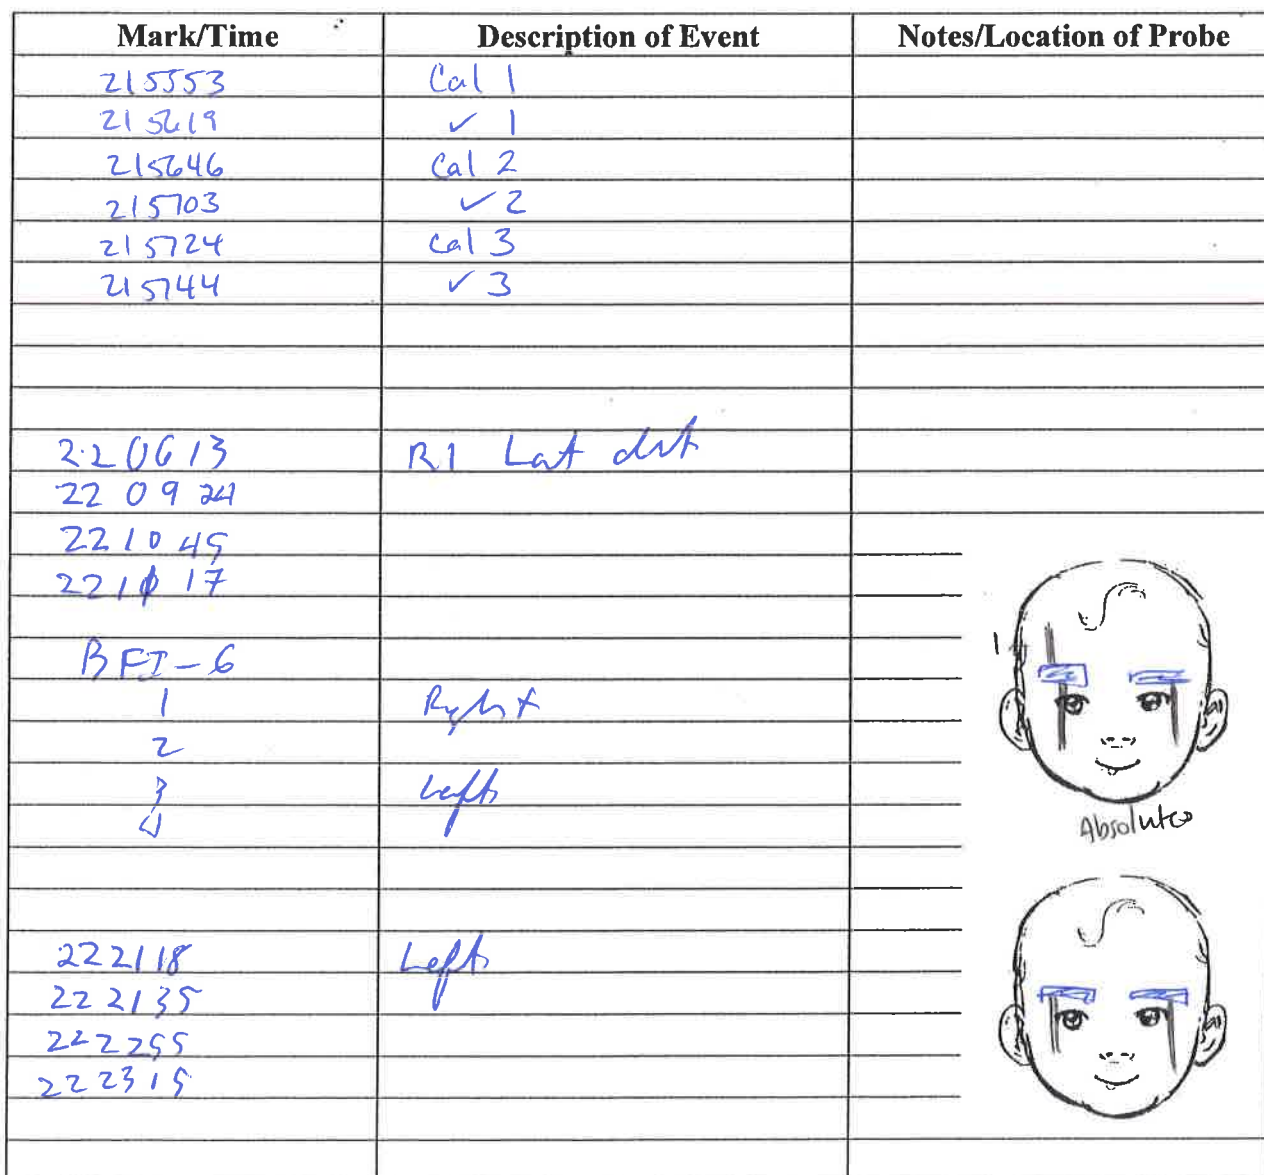 Mark/Time Description of Event Notes/Location of Probe
215553 Cal 1
215619 ✓ 1
215646 Cal 2
215703 ✓ 2
215724 Cal 3
215744 ✓ 3
220613 R1 Lat
22 09 24
22 10 45
22 10 17
BFI-6
1 Right
2
3 Left
4
1
Absolute
222118 Left
222135
222255
222315